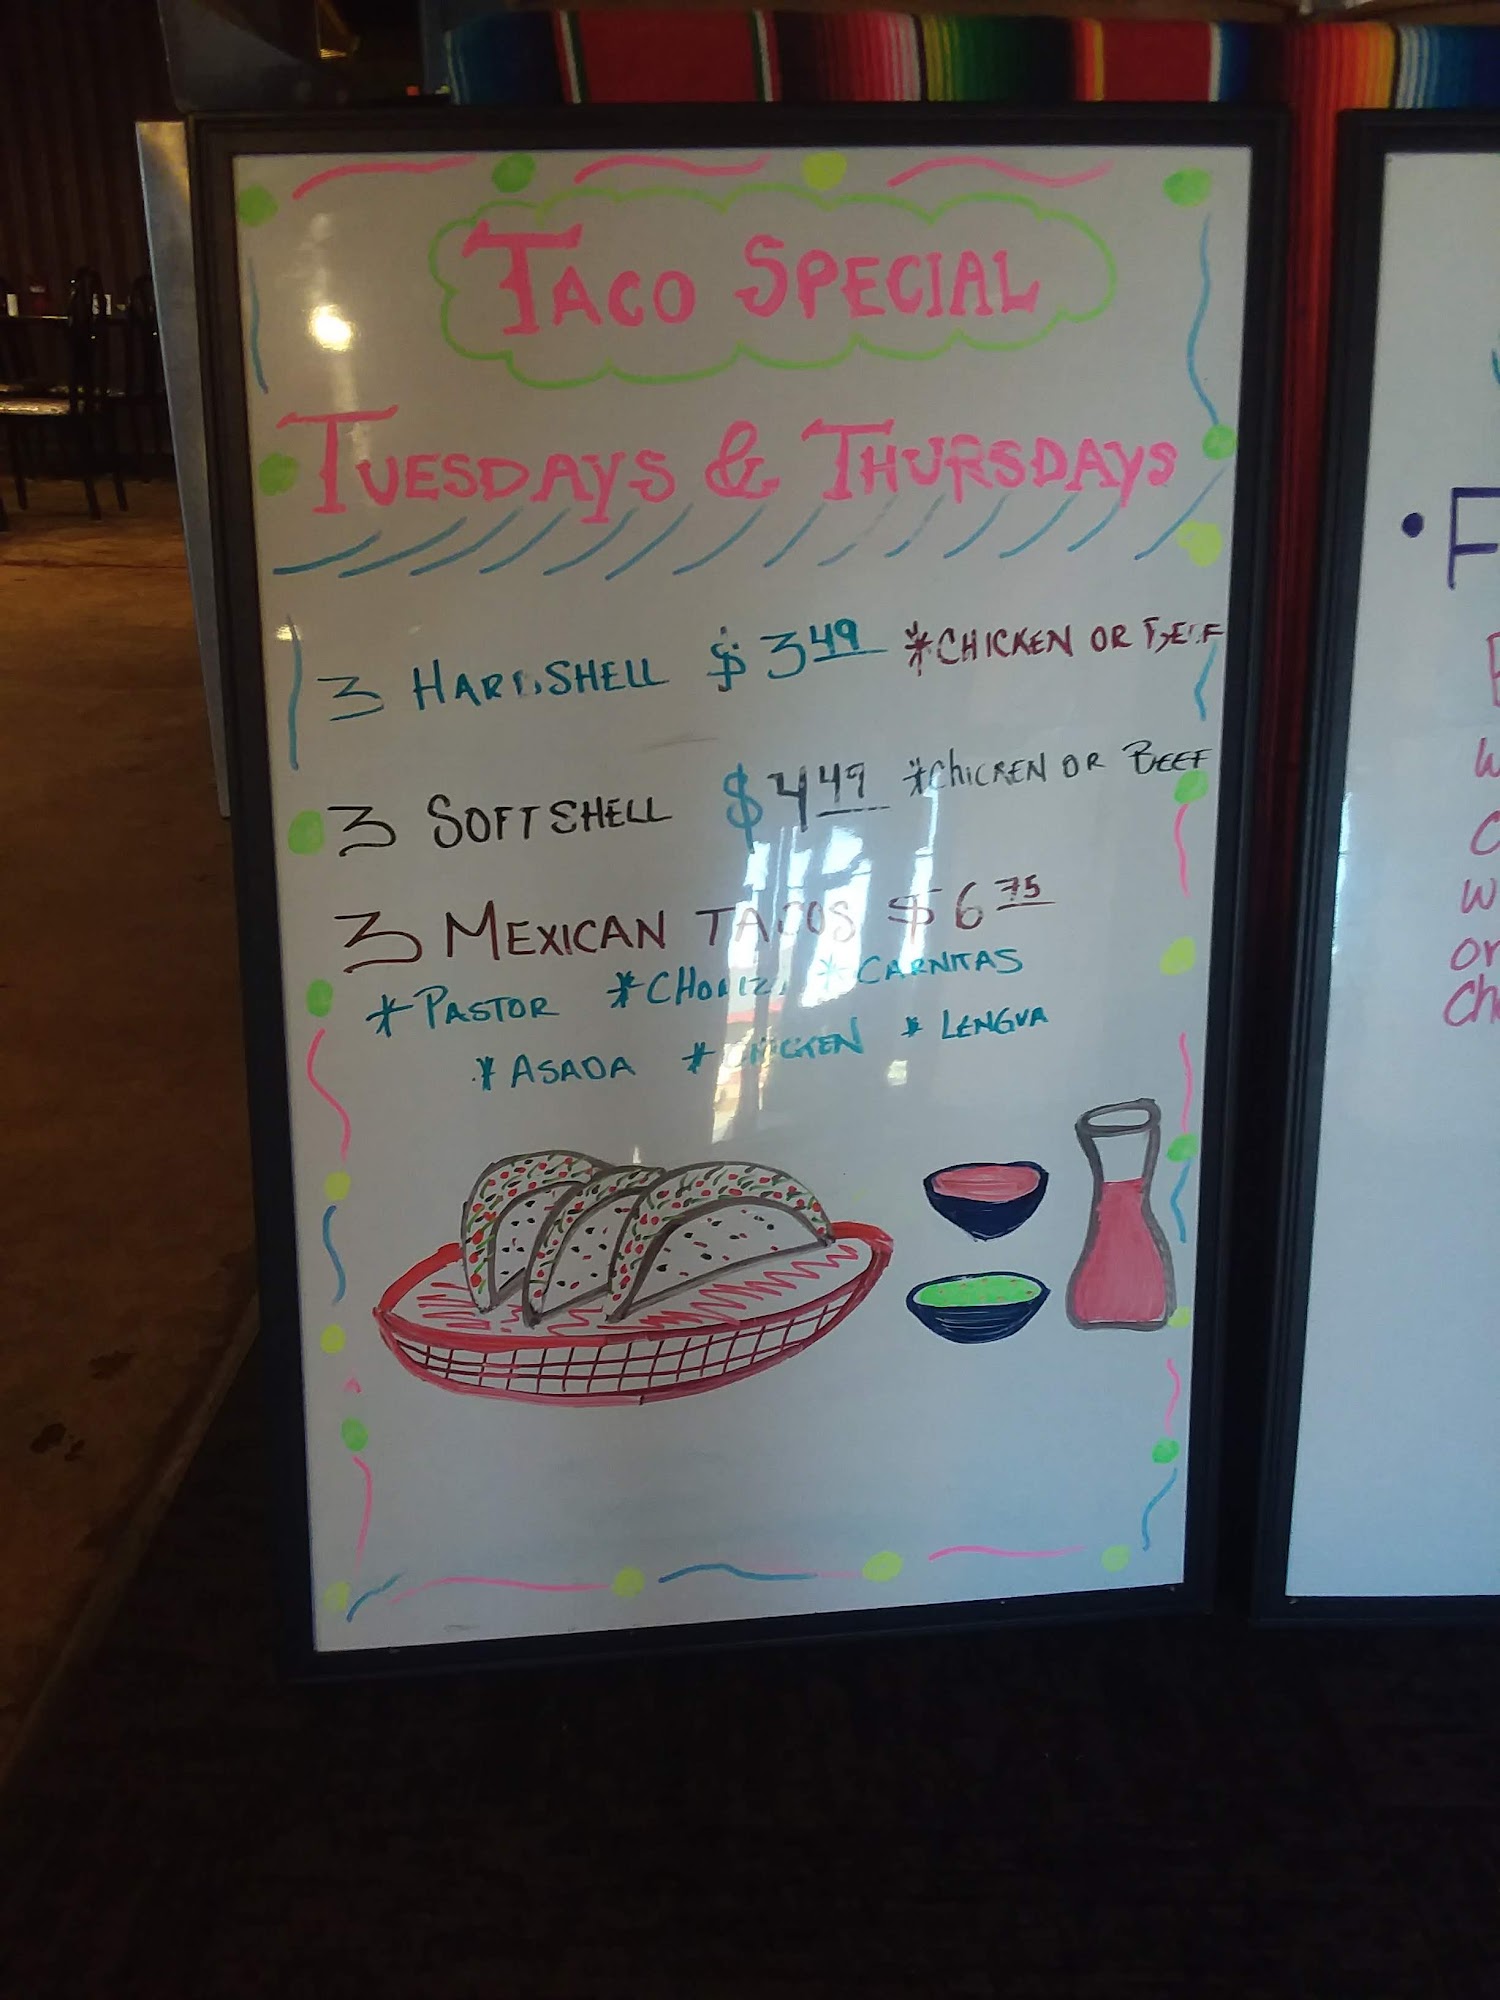 TACO SPECIAL
TUESDAYS & THURSDAYS
3 HARDSHELL $3.49 *CHICKEN OR BEEF
3 SOFTSHELL $4.49 *CHICKEN OR BEEF
3 MEXICAN TACOS $6.75
*PASTOR *CHORIZO *CARNITAS
*ASADA *CHICKEN *LENGUA